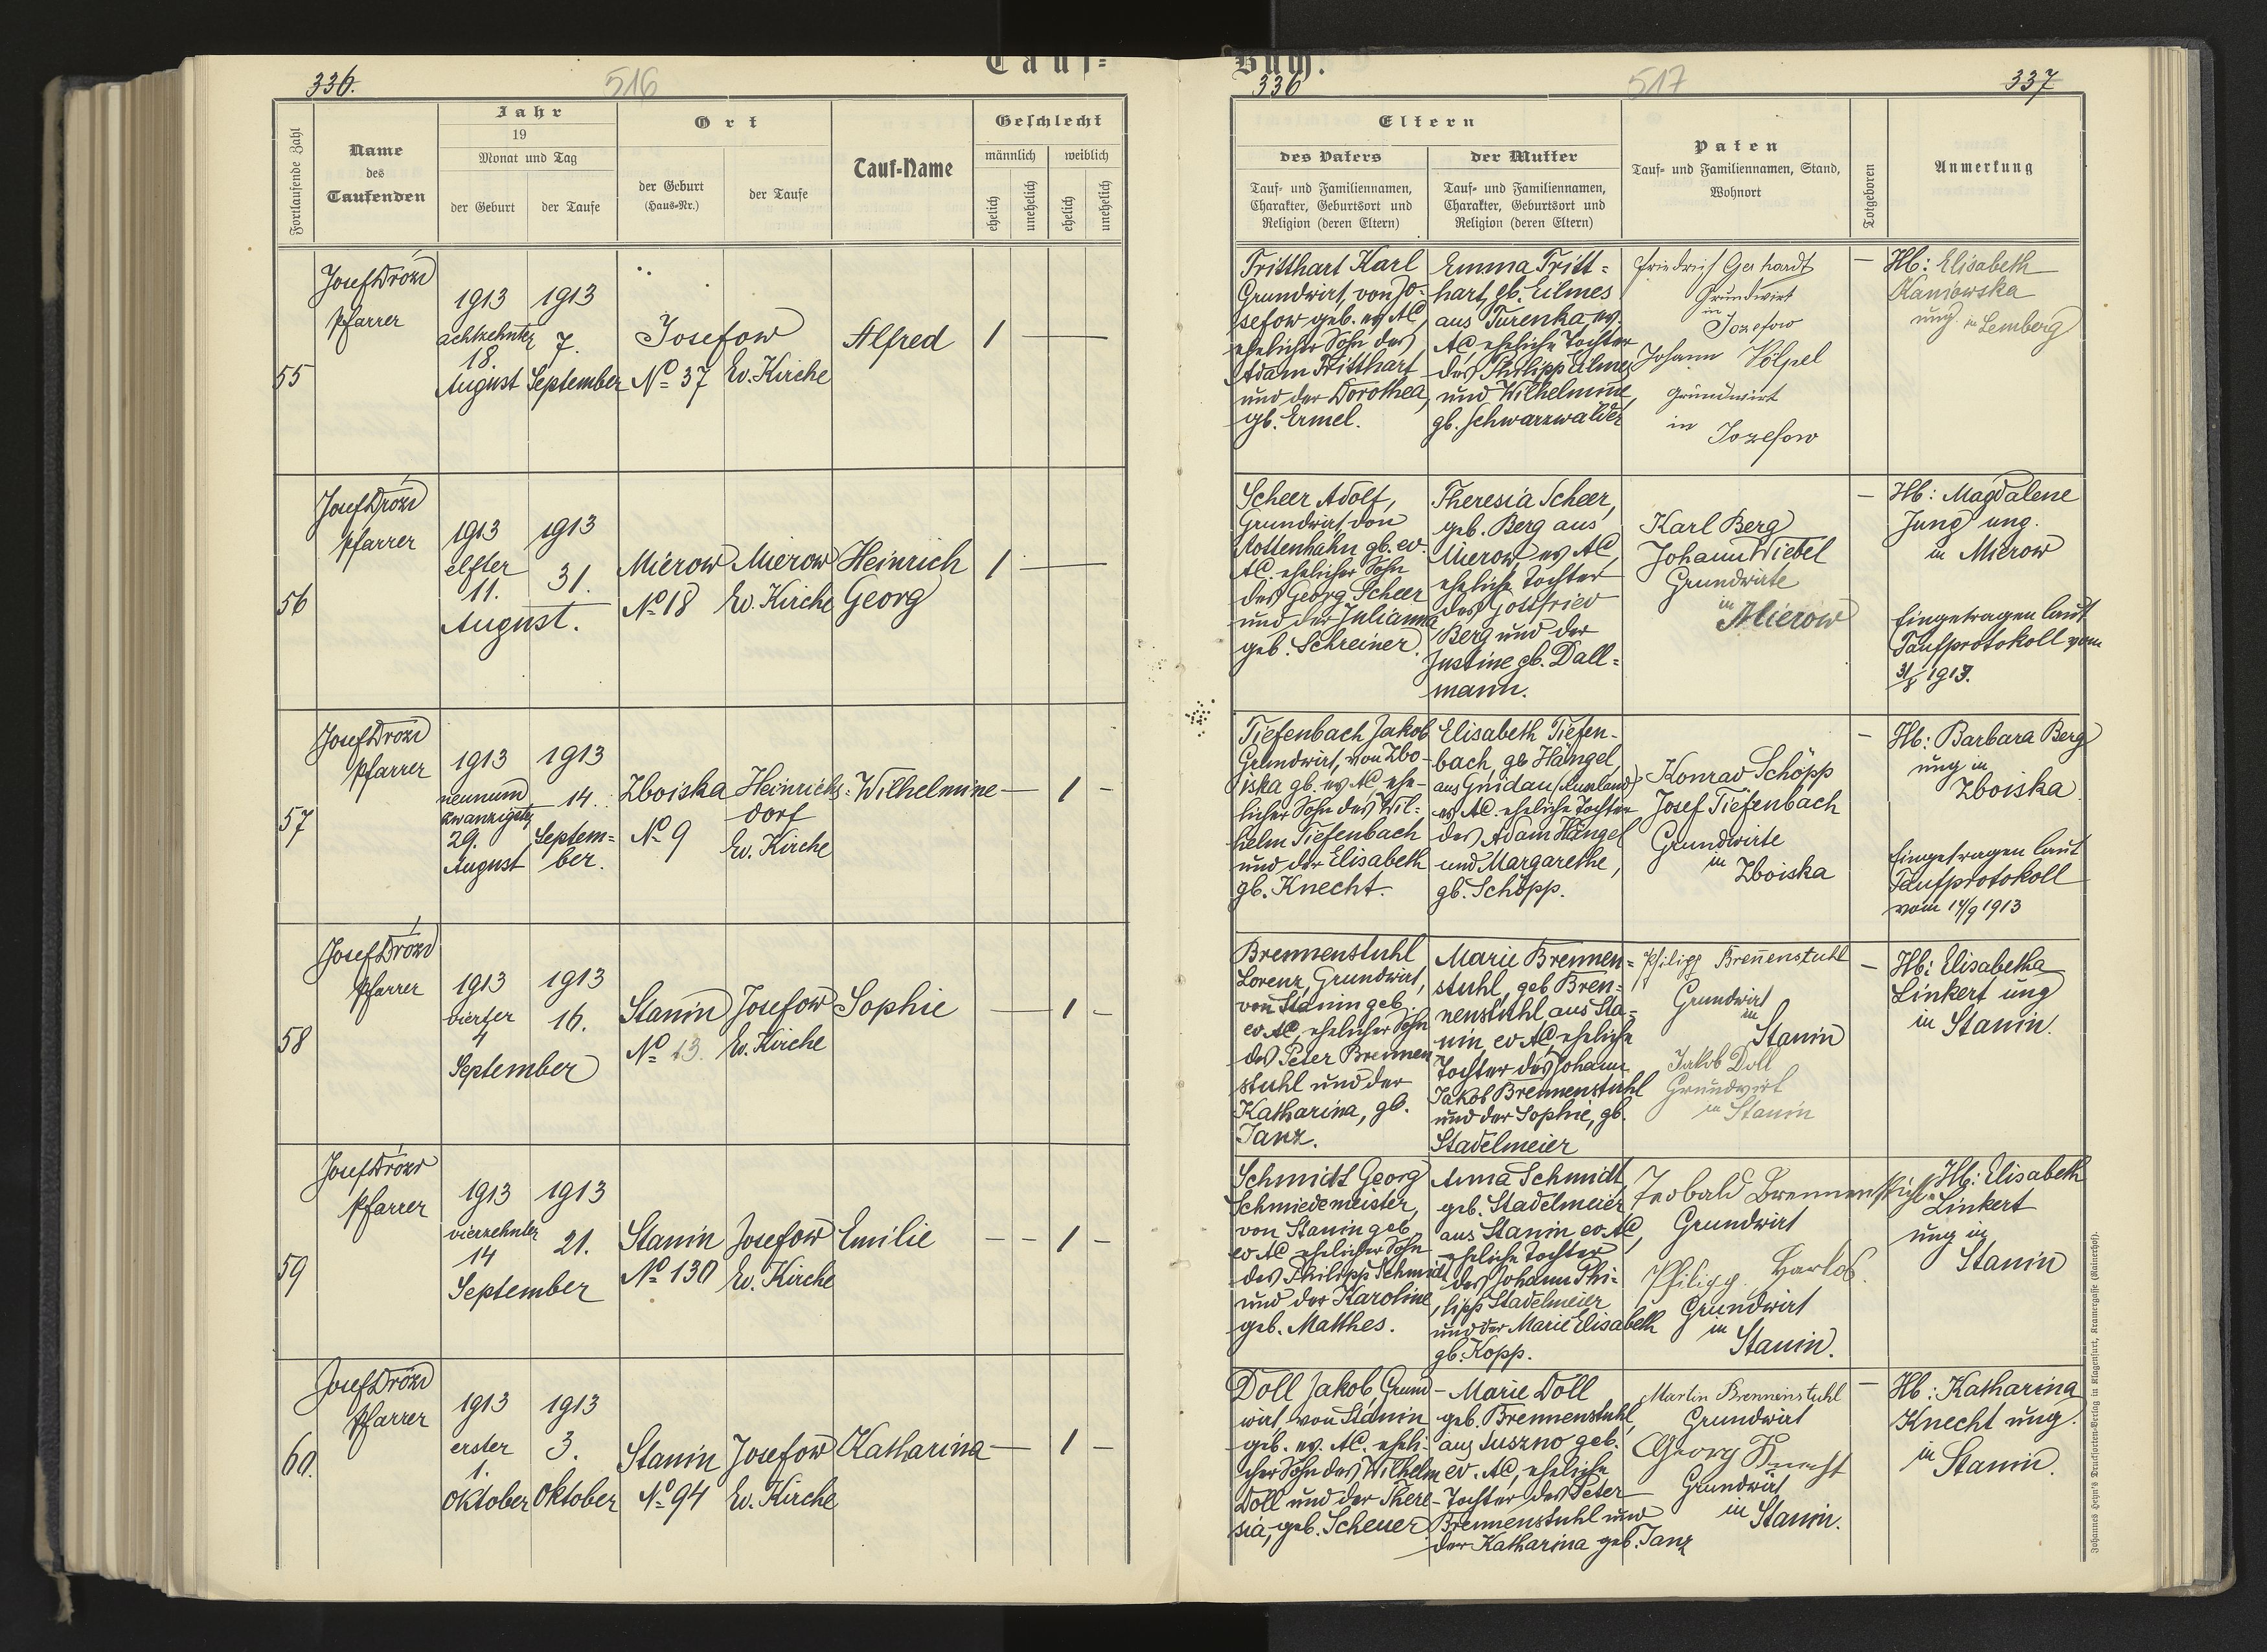 Tauf=
Buch.
336.
516
336
517
337
Fortlaufende Zahl
Name
des
Taufenden
Jahr
19
Monat und Tag
der Geburt
der Taufe
Ort
der Geburt
(Haus-Nr.)
der Taufe
Tauf-Name
Geschlecht
männlich
weiblich
ehelich
unehelich
ehelich
unehelich
Eltern
des Vaters
Tauf- und Familiennamen,
Charakter, Geburtsort und
Religion (deren Eltern)
der Mutter
Tauf- und Familiennamen,
Charakter, Geburtsort und
Religion (deren Eltern)
Paten
Tauf- und Familiennamen, Stand,
Wohnort
Totgeboren
Anmerkung
55
Josef Drozd
Pfarrer
1913
achtzehnter
18.
August
1913
7.
September
Josefow
Nº 37
Ev. Kirche
Alfred
1 —
Tritthart Karl
Grundwirt, von Jo-
sefow geb. ev AC,
ehelicher Sohn des
Adam Tritthart
und der Dorothea,
gb. Ermel.
Emma Tritt=
hart, gb. Eilmes
aus Turenka, ev.
AC, eheliche Tochter
des Philipp Eilmes
und Wilhelmine,
gb. Schwarzwälder
Friedrich Gerhardt
Grundwirt
in
Jozefow
Johann Völpel
Grundwirt
in
Jozefow
—
Hb: Elisabeth
Kaniowska
ung. in Lemberg
56
Josef Drozd
Pfarrer
1913
elfter
11.
August.
1913
31.
Mierow
Nº 18
Mierow
Ev. Kirche
Heinrich
Georg
1 —
Scheer Adolf,
Grundwirt, von
Rottenhahn gb. ev.
AC. ehelicher Sohn
des Georg Scheer
und der Julianna
geb. Schreiner.
Theresia Scheer,
geb. Berg aus
Mierow, ev AC,
eheliche Tochter
des Gottfried
Berg und der
Justine gb. Dall=
mann.
Karl Berg
Johann Wiebel
Grundwirte
in
Mierow
—
Hb: Magdalene
Jung ung.
in Mierow
Eingetragen laut
Taufprotokoll vom
31/8 1913.
57
Josef Drozd
Pfarrer
1913
neunund
zwanzigster
29.
August
1913
14.
Septem=
ber.
Zboiska
Nº 9
Heinrichs=
dorf
Ev. Kirche
Wilhelmine
— 1 -
Tiefenbach Jakob
Grundwirt, von Zbo-
iska gb. ev AC ehe-
licher Sohn des Wil=
helm Tiefenbach
und der Elisabeth
gb. Knecht.
Elisabeth Tiefen-
bach, gb Hängel,
aus Gnidau (Russland)
ev AC. eheliche Tochter
des Adam Hängel
und Margarethe,
gb. Schöpp.
Konrad Schöpp
Josef Tiefenbach
Grundwirte
in
Zboiska
—
Hb: Barbara Berg
ung in
Zboiska
Eingetragen laut
Taufprotokoll
vom 14/9 1913
58
Josef Drozd
Pfarrer
1913
vierter
4
September
1913
16.
Stanin
Nº 13.
Josefow
Ev. Kirche
Sophie
— 1 -
Brennenstuhl
Lorenz, Grundwirt,
von Stanin geb.
ev AC, ehelicher Sohn
des Peter Brennen
stuhl und der
Katharina, gb.
Janz.
Marie Brennen=
stuhl, geb Bren=
nenstuhl aus Sta=
nin ev AC, eheliche
Tochter des Johann
Jakob Brennenstuhl
und der Sophie, gb.
Stadelmeier
Philipp Breñenstuhl
Grundwirt
in
Stanin
Jakob Doll
Grundwirt
in Stanin
—
Hb: Elisabetha
Linkert ung
in Stanin.
59
Josef Drozd
Pfarrer
1913
vierzehnter
14
September
1913
21.
Stanin
Nº 130
Josefow
Ev. Kirche
Emilie
- - 1 -
Schmidt Georg
Schmiedemeister,
von Stanin geb
ev AC ehelicher Sohn
des Philipp Schmidt
und der Karoline,
geb. Matthes.
Anna Schmidt,
geb. Stadelmeier
aus Stanin ev. AC,
eheliche Tochter
des Johann Phi=
lipp Stadelmeier
und der Marie Elisabeth
gb. Kopp.
Teobald Brennenstuhl
Grundwirt
Philipp Harlos
Grundwirt
in
Stanin.
Hb: Elisabeth
Linkert
ung in
Stanin
60.
Josef Drozd
Pfarrer
1913
erster
1.
Oktober
1913
3.
Oktober
Stanin
Nº 94
Josefow
Ev. Kirche
Katharina
— 1 -
Doll Jakob, Grund-
wirt von Stanin
geb. ev. AC. eheli-
cher Sohn des Wilhelm
Doll und der There-
sia, geb. Scheuer
Marie Doll
geb. Brennenstuhl,
aus Suszno geb.
ev. AC, eheliche
Tochter des Peter
Brennenstuhl und
der Katharina geb. Janz
Martin Brennenstuhl
Grundwirt
Georg Knecht
Grundwirt
in
Stanin.
—
Hb: Katharina
Knecht ung.
in
Stanin.
Johannes Heyn's Drucksorten-Verlag in Klagenfurt, Kramergasse (Rainerhof).